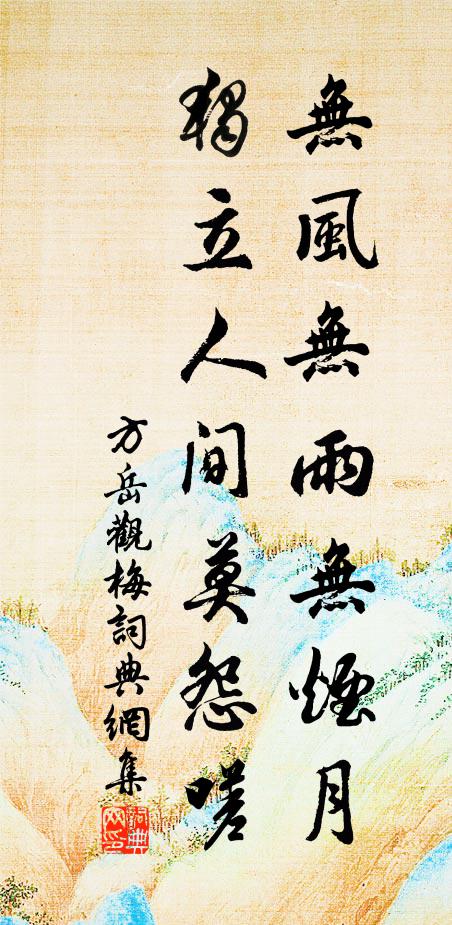 無風無雨無煙月
獨立人間莫怨嗟
方岳觀梅詞典網集
詞典